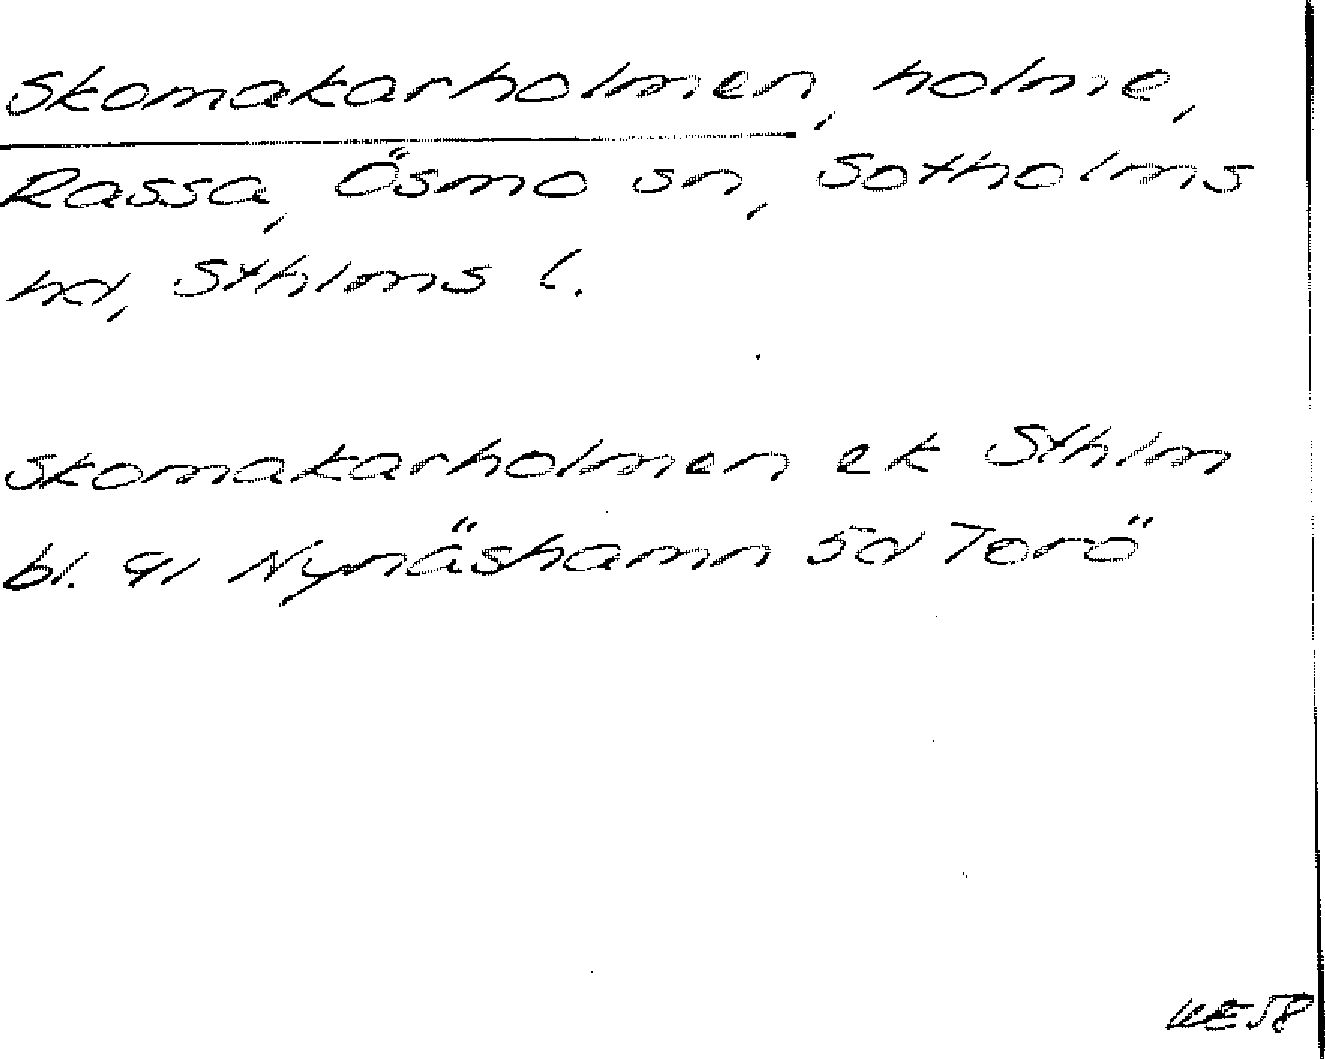 Skomakarholmen, holme,
Rassa, Ösmo sn, Sotholms
hd, Sthlms l.
Skomakarholmen ek Sthlm
bl. 91 Nynäshamn 5d Torö